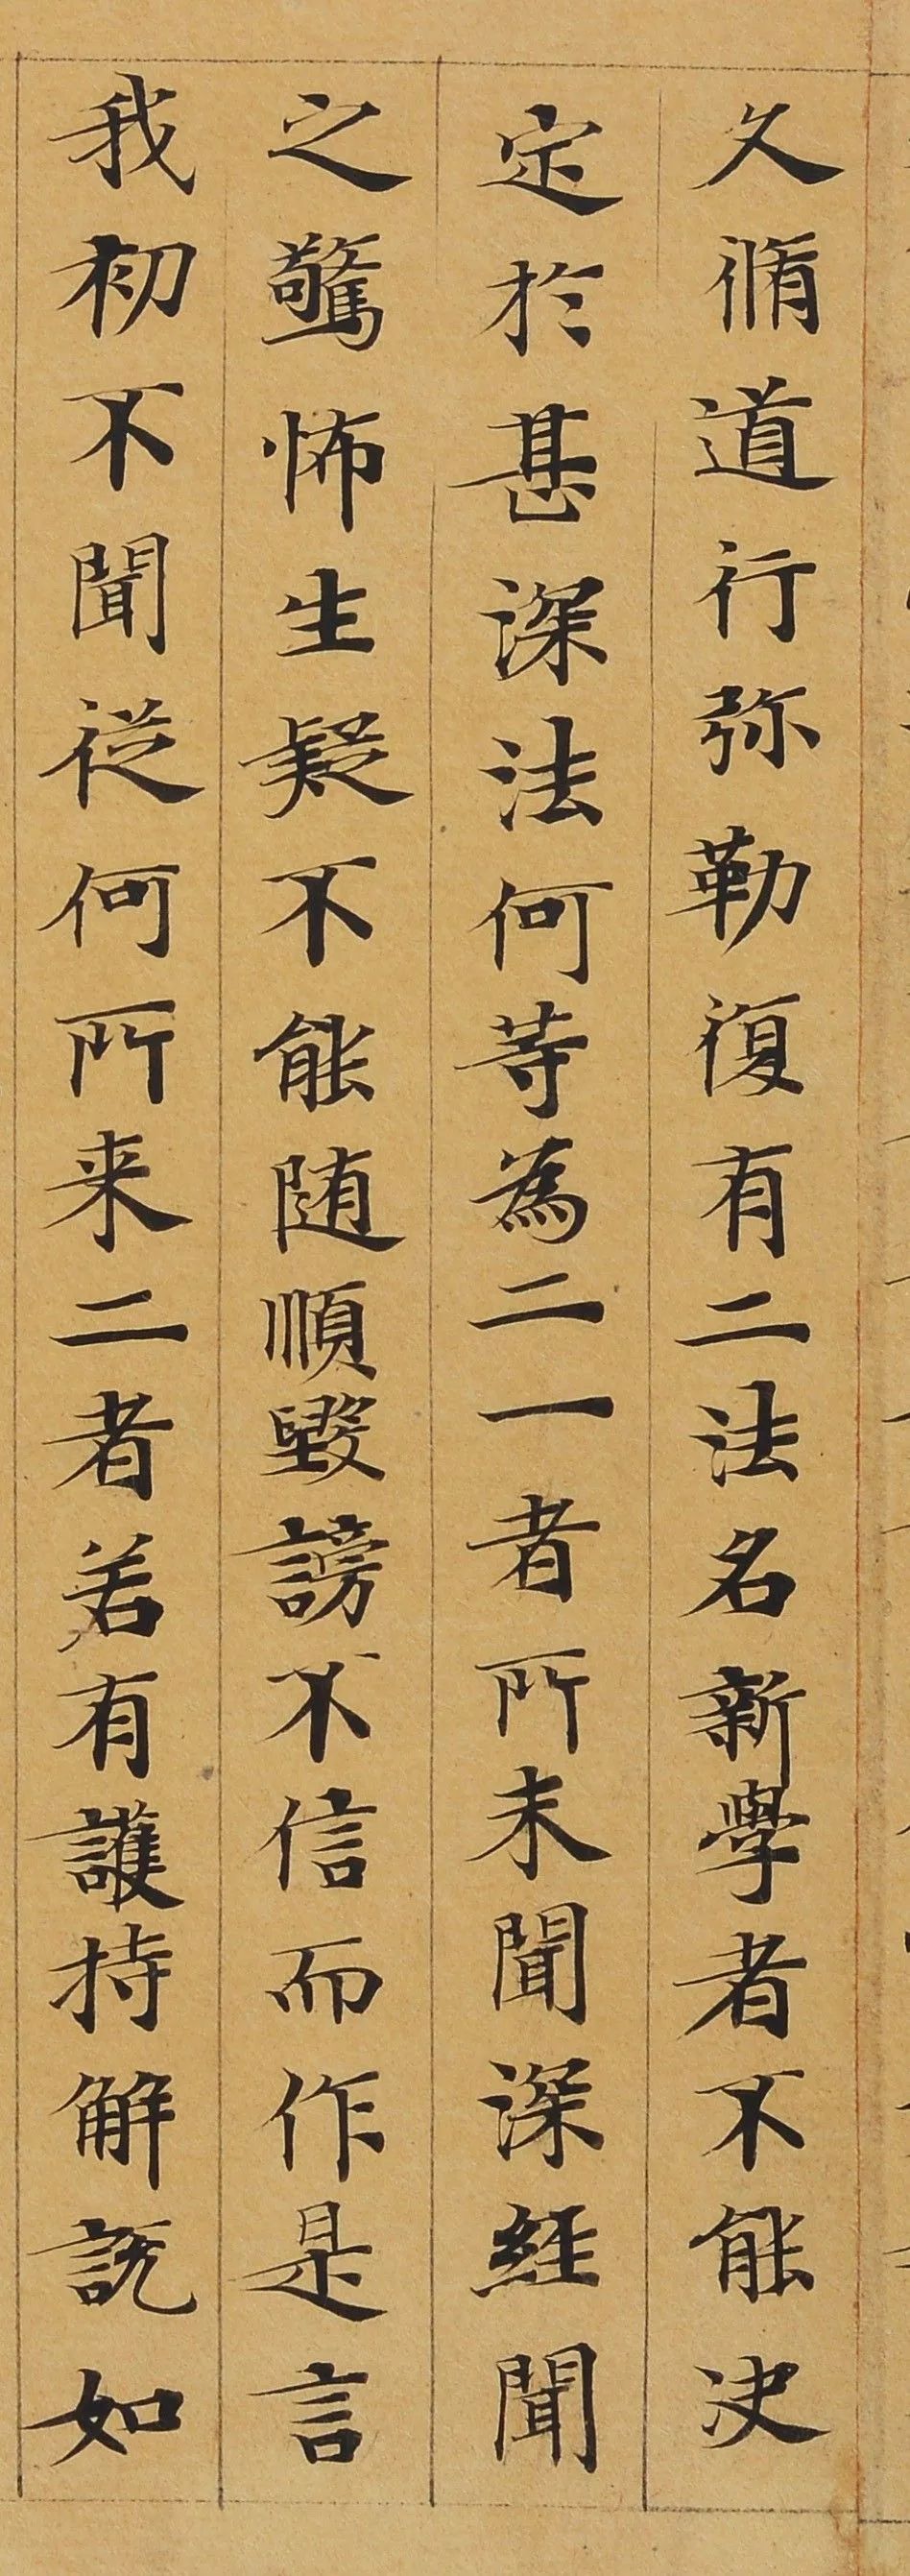 久脩道行弥勒復有二法名新學者不能决
定於甚深法何等為二一者所未聞深經聞
之驚怖生疑不能随順毀謗不信而作是言
我初不聞從何所来二者若有護持解説如